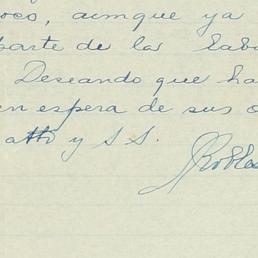 oco, aunque ya
parte de las lab
Deseando que ha
en espera de sus o
atto y S.S.
Robles